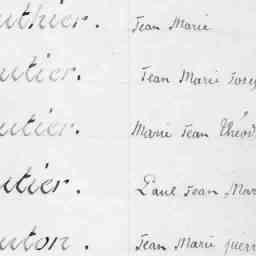 uthier. Jean Marie
utier. Jean Marie Jose
utier. Marie Jean Théod
utier. Paul Jean Mar
uton. Jean Marie pierr